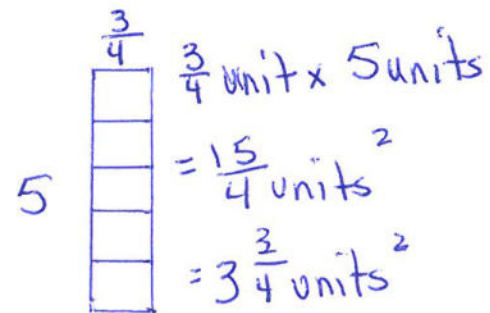 3/4
3/4 unit x 5 units
5
= 15/4 units²
= 3 3/4 units²